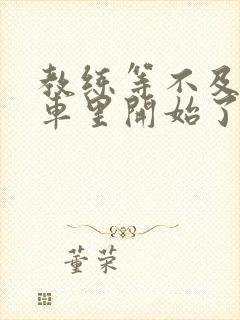 教练等不及
车里開始了
董荣